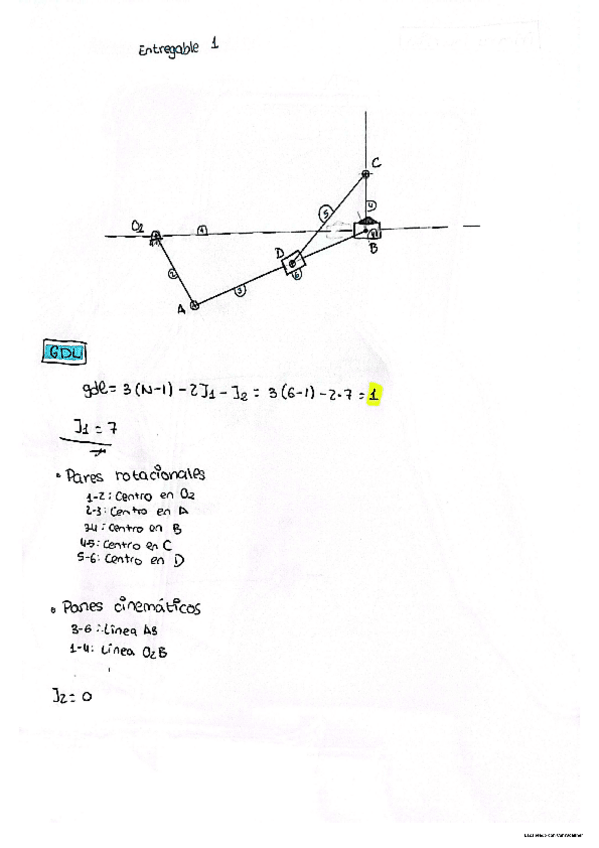 Entregable 1
C
5
4
O2
1
B
D
2
6
3
A
GDL
gdl = 3(N-1) - 2J1 - J2 = 3(6-1) - 2·7 = 1
J1 = 7
• Pares rotacionales
1-2: Centro en O2
2-3: Centro en A
34: Centro en B
45: Centro en C
5-6: Centro en D
• Pares cinemáticos
3-6: Línea AB
1-4: Línea O2B
J2 = 0